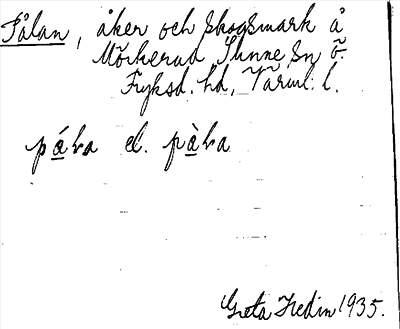 Pålan, åker och skogsmark å
Mörkerud, Sunne sn Ö.
Fryksd. hd, Värml. l.
pá̲ƚa el. pà̲ƚa
Greta Hedin 1935.